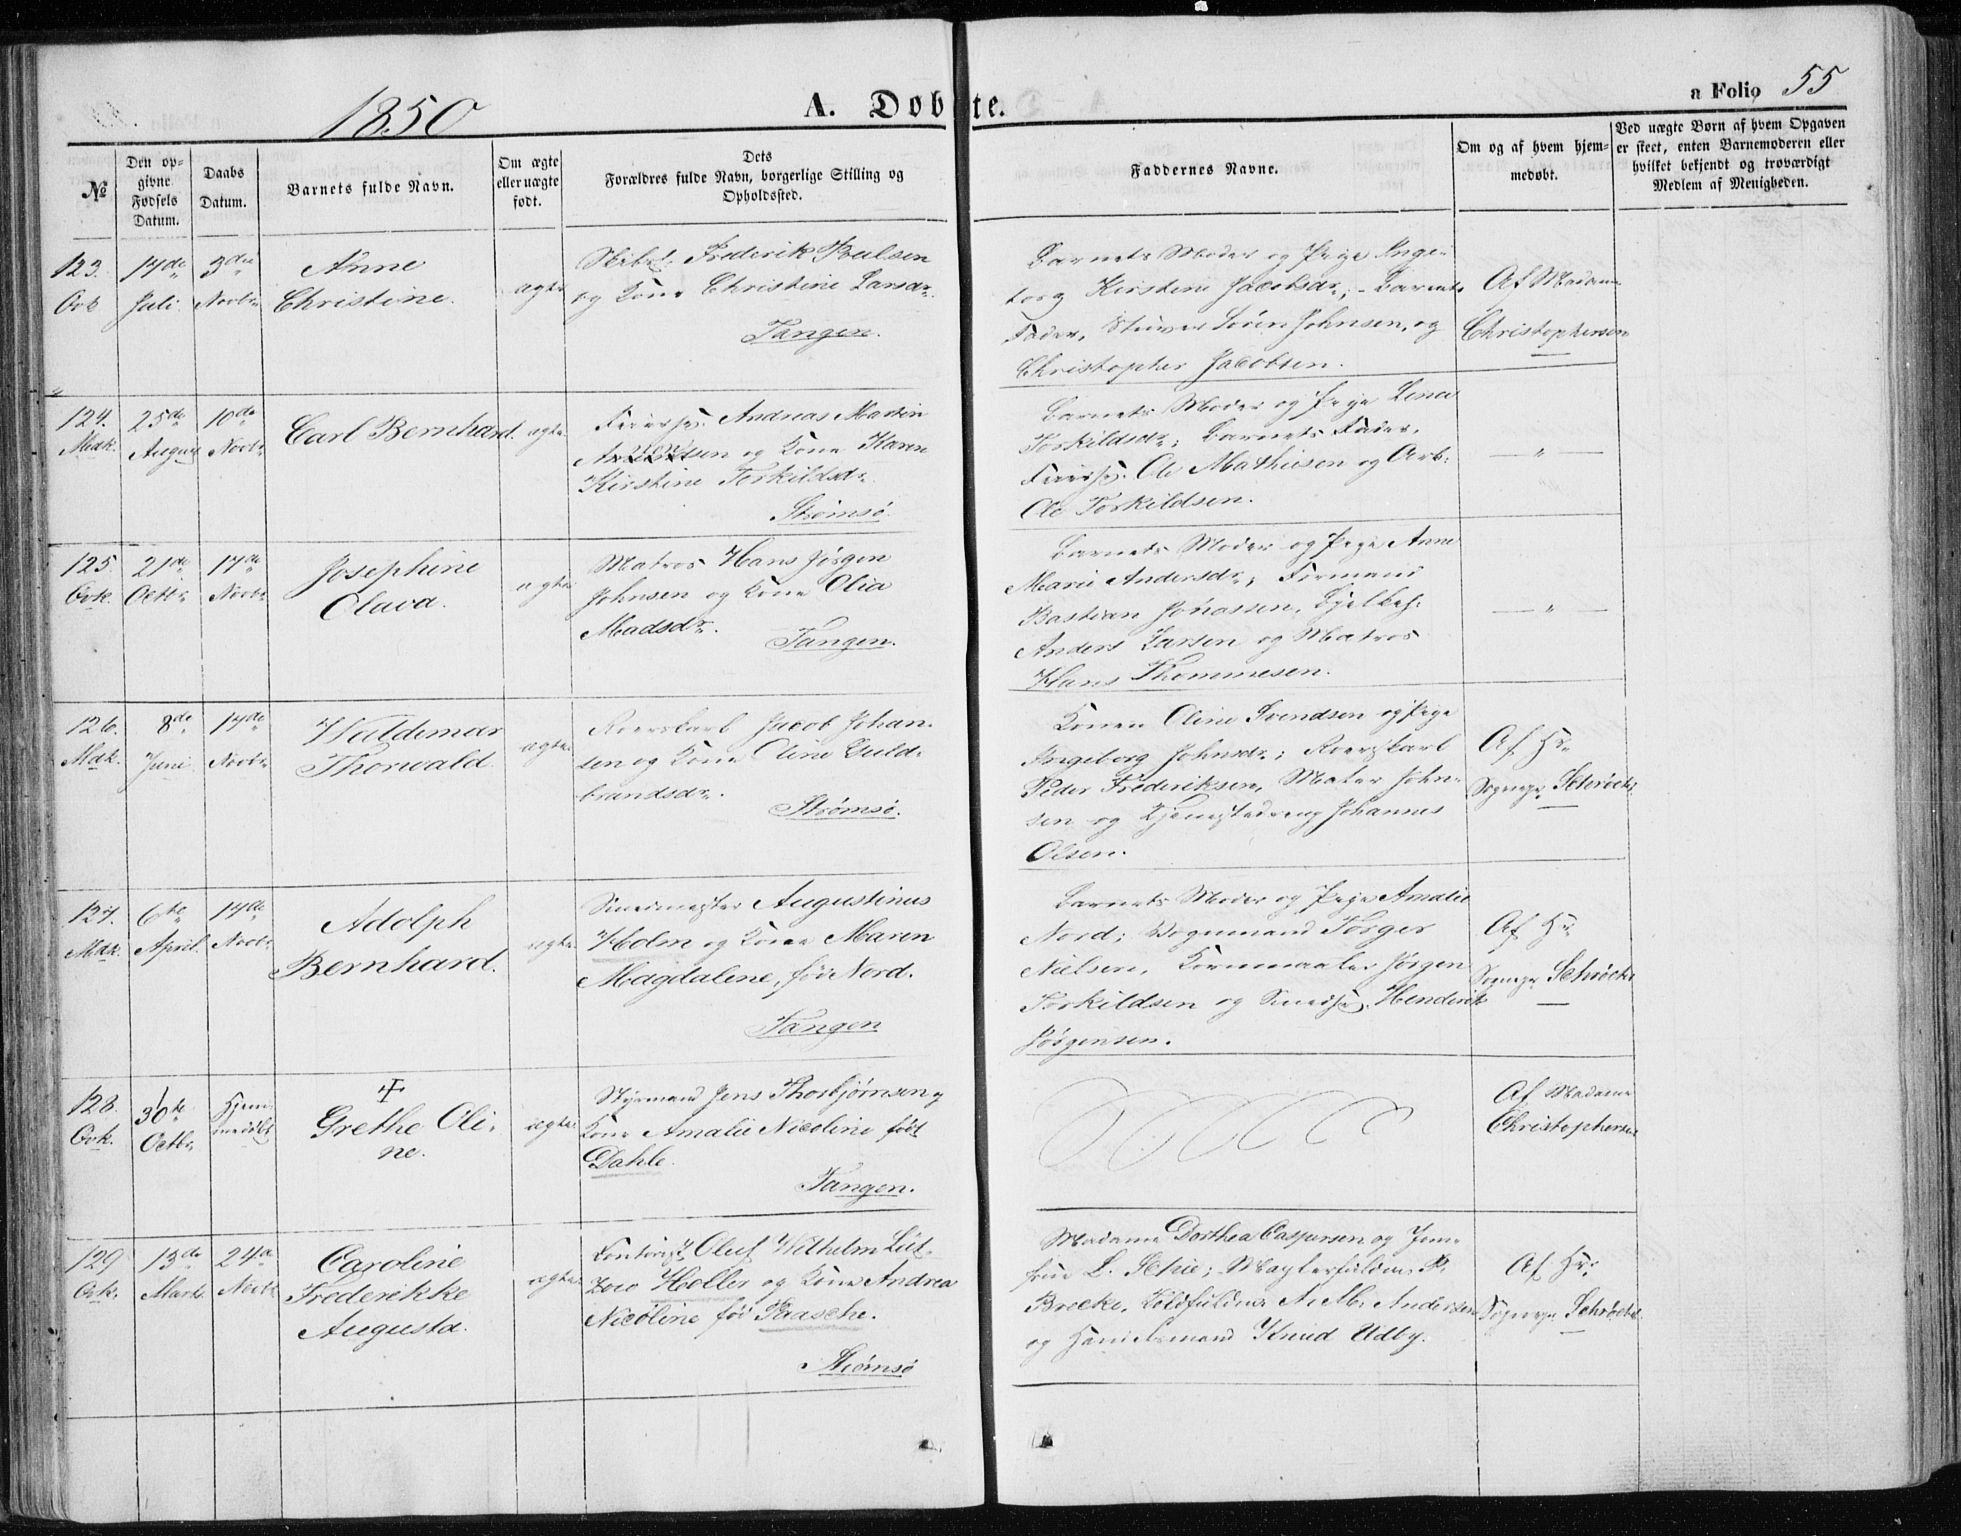 1850
A. Døbte.
a Folio 55
№
Den op-
givne
Fødsels
Datum.
Daabs
Datum.
Barnets fulde Navn.
Om ægte
eller uægte
født.
Dets
Forældres fulde Navn, borgerlige Stilling og
Opholdssted.
Faddernes Navne.
Om og af hvem hjem-
medøbt.
Ved uægte Børn af hvem Opgaven
er skeet, enten Barnemoderen eller
hvilket bekjendt og troværdigt
Medlem af Menigheden.
123.
Qvk
17de
Juli
3die
Novbr
Anne
Christine.
ægte
Frederik
og Kone Christine Larsdr.
Tangen.
Barnets Moder og Pige Inge-
borg Kirstine Jacobsdr; Barnets
Fader, Søren Johnsen, og
Christopher Jacobsen.
Af Madame
Christophersen
124.
Mdk.
25de
August
10de
Novbr
Carl Bernhard.
ægte
Andreas Martin
og Kone Karen
Kirstine Terkildsdr.
Strømsø.
Barnets Moder og Pige Lina
Torkildsdr; Barnets Fader,
Ole Mathiesen og Arb:
Ole Torkildsen.
— " —
125.
Qvk.
21de
Octbr
17de
Novbr
Josephine
Olava.
ægte
Matros Hans Jørgen
Johnsen og Kone Olia
Madsdr.
Tangen.
Barnets Moder og Pige Anne
Marie Andersdr;
Bastian Jonassen,
Anders Larsen og Matros
Hans Thommesen.
— " —
126.
Mdk.
8de
Juni
17de
Novbr
Waldemar
Thorwald
ægte
Roerskarl Jacob Johan-
sen og Kone Oline Guld-
brandsdr.
Strømsø.
Konen Oline Svendsen og Pige
Ingeborg Johnsdr; Roerskarl
Peder Frederiksen, John-
sen og Tjenestedreng Johannes
Olsen.
Af Hr
Sognepr Schrøder
127.
Mdk.
6te
April.
17de
Novbr
Adolph
Bernhard.
ægte
Smedmester Augustinus
Holm og Kone Maren
Magdalene, før Nord.
Tangen
Barnets Moder og Pige Amalie
Nord; Vognmand Torger
Nielsen, Kornmaaler Jørgen
Torkildsen og Henderik
Jørgensen.
Af Hr
Sognepr Schrøder
128.
Qvk.
30te
Octbr
Hjem-
medøbt
Grethe Oli-
ne.
ægte
Styrmand Jens Thorbjørnsen og
Kone Amalie Nicoline født
Dahle.
Tangen.
Af Madame
Christophersen
129
Qvk.
13de
Marts
24de
Novbr
Caroline
Frederikke
Augusta.
ægte
Contorist Oluf Wilhelm Lüt-
zow Holler og Kone Andrea
Nicoline før Paasche.
Strømsø
Madame Dorthea Caspersen og Jom-
frue L. Schie;
A. M. Andersen
og Handelsmand Knud Udby.
Af Hr
Sognepr Schrøder